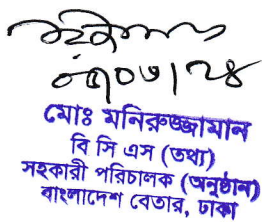 ০৫/০৬/২৪
মোঃ মনিরুজ্জামান
বি সি এস (তথ্য)
সহকারী পরিচালক (অনুষ্ঠান)
বাংলাদেশ বেতার, ঢাকা